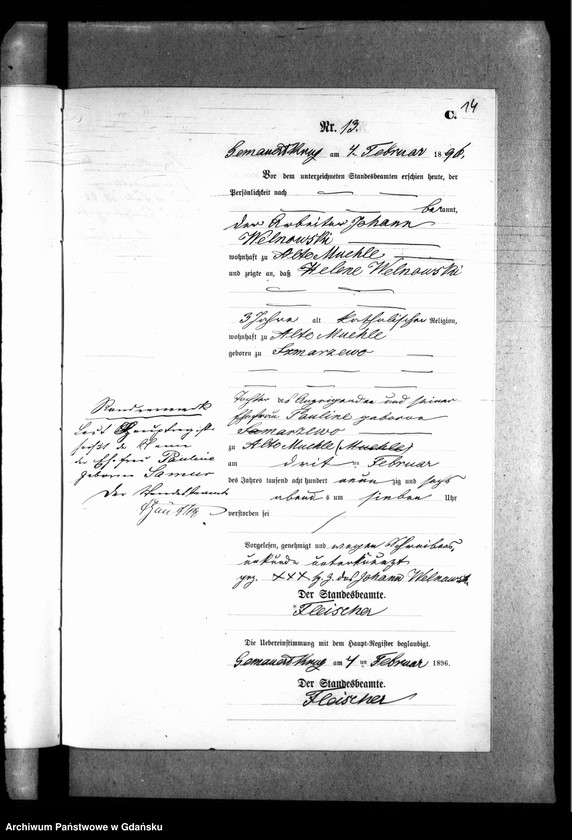 14
C.
Nr. 13.
Gemauert Krug am 4. Februar 1896.
Vor dem unterzeichneten Standesbeamten erschien heute, der
Persönlichkeit nach
bekannt,
der Arbeiter Johann
Welnowski
wohnhaft zu Alte Muehle
und zeigte an, daß Helene Welnowski
3 Jahre alt katholischer Religion,
wohnhaft zu Alte Muehle
geboren zu Szmarzewo
Tochter des Anzeigenden und seiner
Ehefrau Pauline geborene
Szmarzewo
zu Alte Muehle (Muehle)
am drit ten Februar
des Jahres tausend acht hundert neun zig und sechs
abends um sieben Uhr
verstorben sei
Vorgelesen, genehmigt und wegen Schreibens
unkunde unterkreuzt
gez. XXX Hz. des Johann Welnowski.
Der Standesbeamte.
Fleischer
Die Uebereinstimmung mit dem Haupt-Register beglaubigt.
Gemauert Krug am 4 ten Februar 1896.
Der Standesbeamte.
Fleischer
Randvermerk
Laut Hauptregister
heißt der Name
der Ehefrau Pauline
geborene Samur
Der Standesbeamte
Archiwum Państwowe w Gdańsku